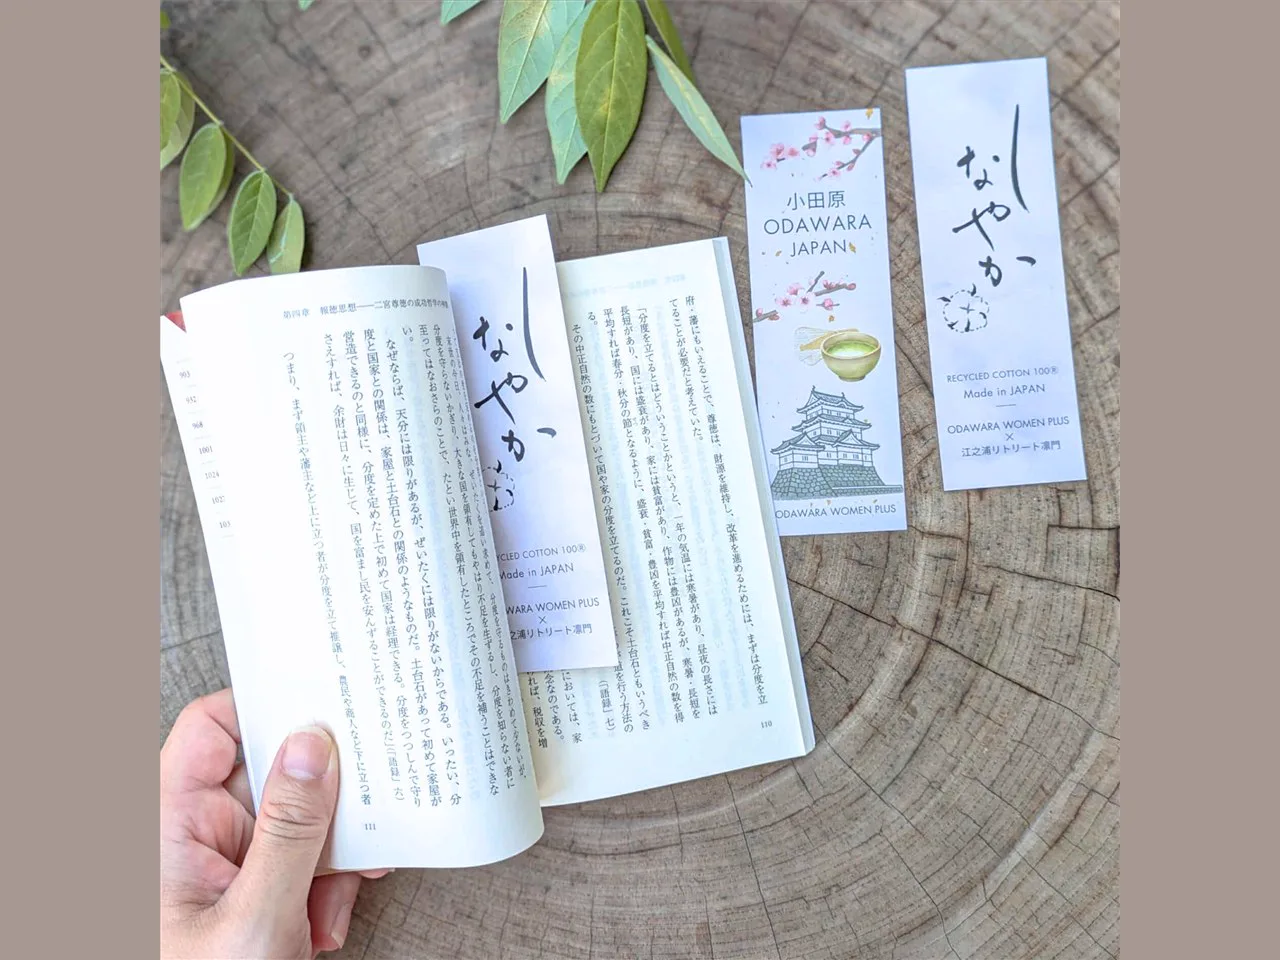 第四章 報徳思想——二宮尊徳の成功哲学の神髄
分度を守らないかぎり、大きな国を領有してもやはり不足を生ずるし、分度を知らない者に
至ってはなおさらのことで、たとい世界中を領有したところでその不足を補うことはできな
い。
なぜならば、天分には限りがあるが、ぜいたくには限りがないからである。いったい、分
度と国家との関係は、家屋と土台石との関係のようなものだ。土台石があって初めて家屋が
営造できるのと同様に、分度を定めた上で初めて国家は経理できる。分度をつつしんで守り
さえすれば、余財は日々に生じて、国を富まし民を安んずることができるのだ」(『語録』六)
つまり、まず領主や藩主など上に立つ者が分度を立て推譲し、農民や商人など下に立つ者
111
903
957
968
1001
1024
しなやか
RECYCLED COTTON 100®
Made in JAPAN
ODAWARA WOMEN PLUS
×
江之浦リトリート凛門
府・藩にもいえることで、尊徳は、財源を維持し、改革を進めるためには、まずは分度を立
てることが必要だと考えていた。
「分度を立てるとはどういうことかというと、一年の気温には寒暑があり、昼夜の長さには
長短があり、国には盛衰があり、家には貧富があり、作物には豊凶があるが、寒暑・長短を
平均すれば春分・秋分の節となるように、盛衰・貧富・豊凶を平均すれば中正自然の数を得
る。
その中正自然の数にもとづいて国や家の分度を立てるのだ。これこそ土台石ともいうべき
道を行う方法の
(『語録』七)
においては、家
念なのである。
れば、税収を増
110
小田原
ODAWARA
JAPAN
ODAWARA WOMEN PLUS
しなやか
RECYCLED COTTON 100®
Made in JAPAN
ODAWARA WOMEN PLUS
×
江之浦リトリート凛門